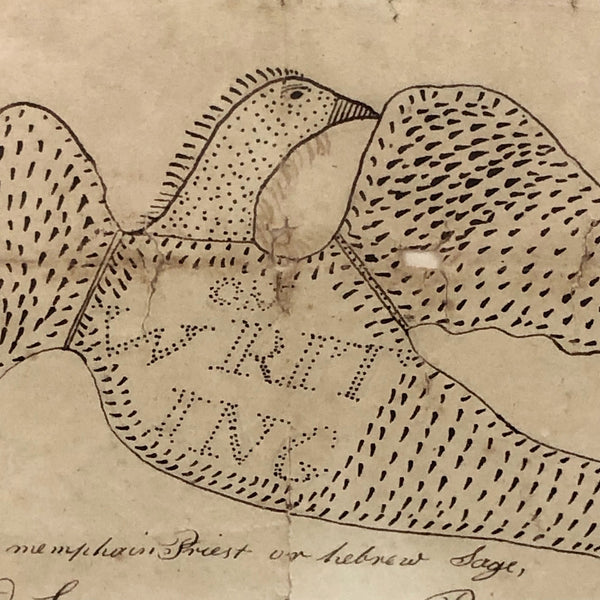 OF
WRIT
ING
memphain Priest or hebrew Sage,